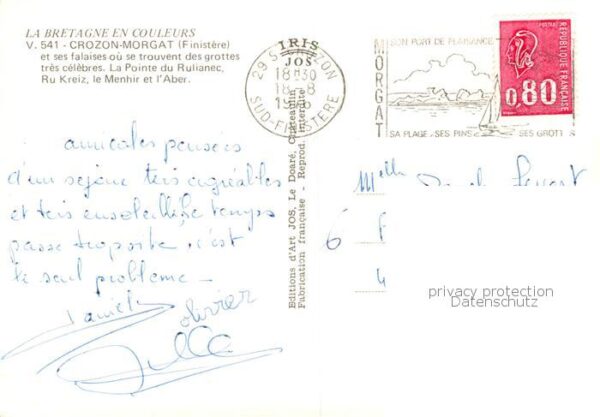 LA BRETAGNE EN COULEURS
V. 541 - CROZON-MORGAT (Finistère)
et ses falaises où se trouvent des grottes
très célèbres. La Pointe du Rulianec,
Ru Kreiz, le Menhir et l'Aber.
IRIS
JOS
Editions d'Art JOS, Le Doaré, Châteaulin
Fabrication française - Reprod. interdite
18H30
18-8
SUD-FINISTÈRE
MORGAT
SON PORT DE PLAISANCE
SA PLAGE - SES PINS
SES GROTT
POSTES
REPUBLIQUE FRANÇAISE
0,80
amicales pensées
d'un séjour très agréables
et très ensoleillé le temps
passe trop vite, c'est
le seul problème -
Daniel
olivier
Melle
6
4
privacy protection
Datenschutz